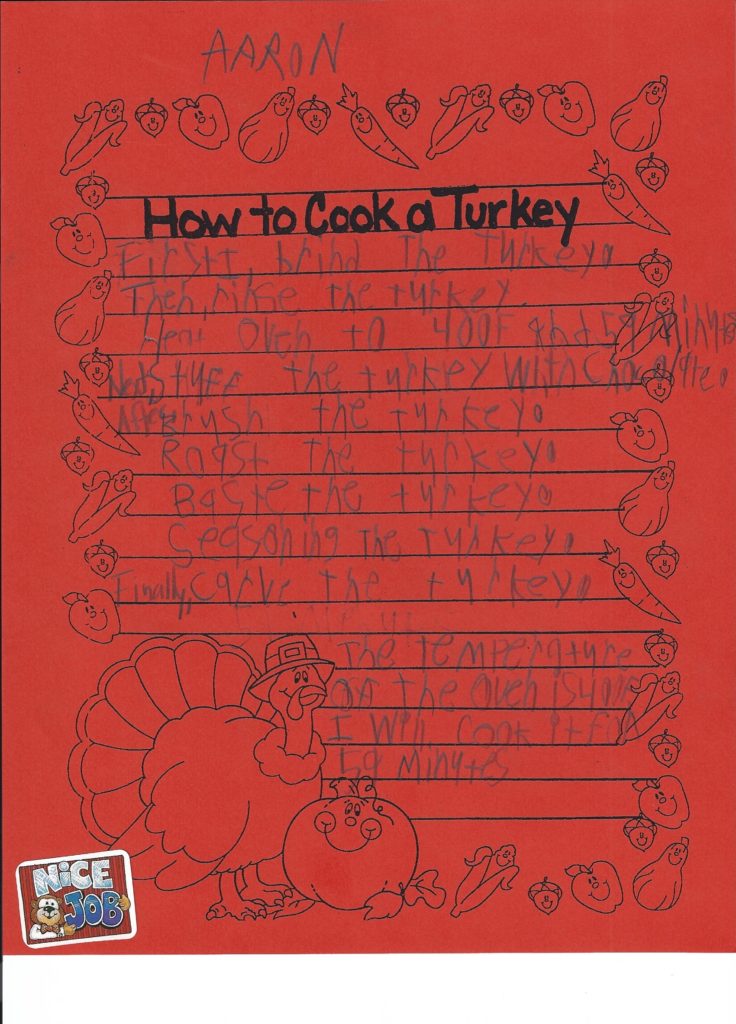 AARON
How to Cook a Turkey
First, brind the turkey.
Then, rinse the turkey.
Heat oven to 400F and 59 minytes
Next, stuff the turkey with Chocolate.
After Brush the turkey.
Roast the turkey.
Baste the turkey.
Seasoning the turkey.
Finally, carve the turkey.
The temperature
on the oven is 400F
I will cook it for
59 minytes
NiCE
JOB